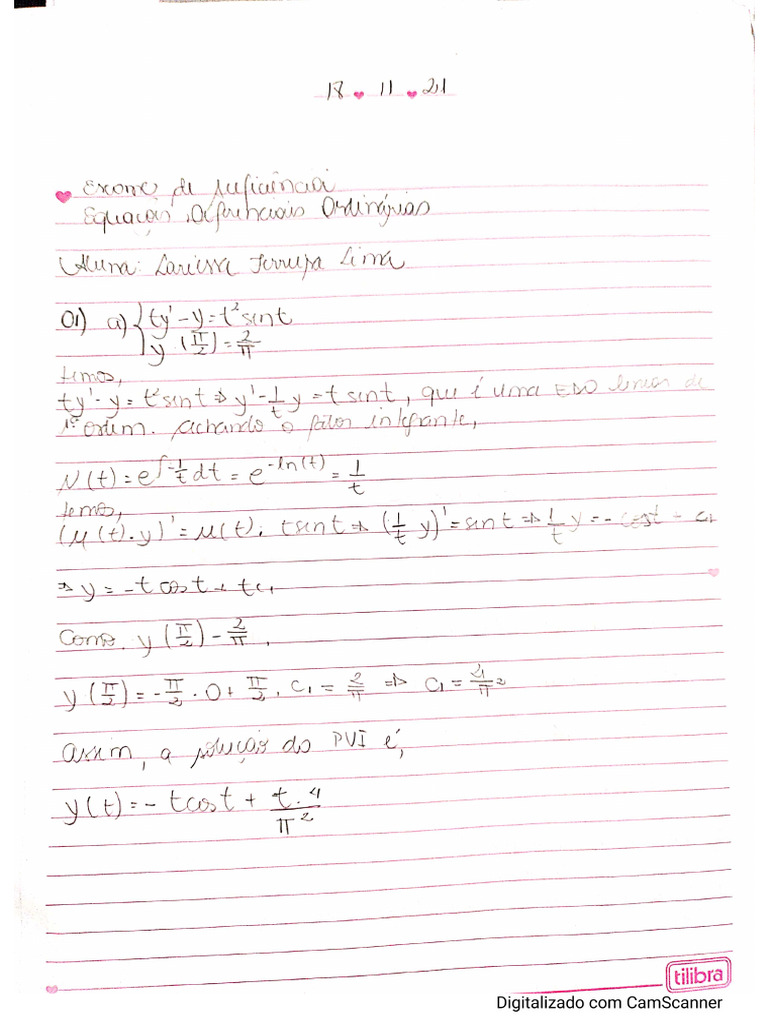 18 . 11 . 21
Exame de suficiência
Equações Diferenciais Ordinárias
Aluna: Larissa Lima
01) a) { ty' - y = t² sint
y (π/2) = 2/π
temos,
ty' - y = t² sint ⇒ y' - 1/t y = t sint, que é uma EDO linear de
1ª ordem. Achando o fator integrante,
μ(t) = e^∫-1/t dt = e^-ln(t) = 1/t
temos,
(μ(t).y)' = μ(t). tsint ⇒ (1/t y)' = sint ⇒ 1/t y = - cost + c₁
⇒ y = -t cost + tc₁
Como y (π/2) = 2/π,
y (π/2) = -π/2 · 0 + π/2 . c₁ = 2/π ⇒ c₁ = 4/π²
Assim, a solução do PVI é,
y(t) = - tcost + t.4/π²
tilibra
Digitalizado com CamScanner